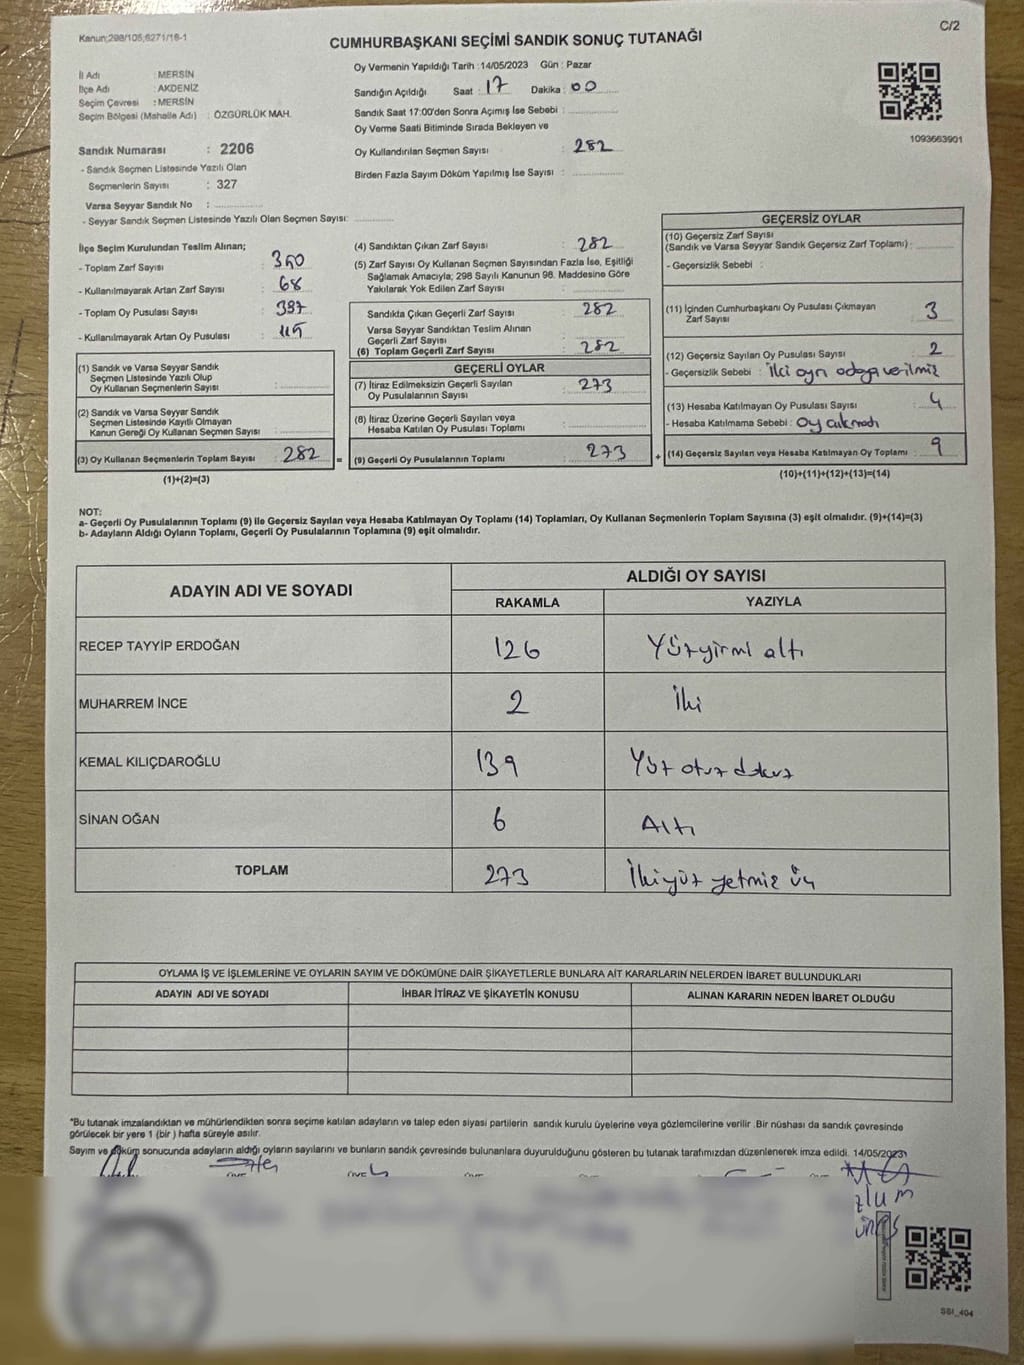 Kanun;298/105,6271/18-1
C/2
CUMHURBAŞKANI SEÇİMİ SANDIK SONUÇ TUTANAĞI
İl Adı : MERSİN
İlçe Adı : AKDENİZ
Seçim Çevresi : MERSİN
Seçim Bölgesi (Mahalle Adı) : ÖZGÜRLÜK MAH.
Oy Vermenin Yapıldığı Tarih :14/05/2023 Gün : Pazar
Sandığın Açıldığı Saat : 17 Dakika : 00
Sandık Saat 17:00'den Sonra Açımış İse Sebebi :
Oy Verme Saati Bitiminde Sırada Bekleyen ve
Oy Kullandırılan Seçmen Sayısı : 282
Birden Fazla Sayım Döküm Yapılmış İse Sayısı :
1093663901
Sandık Numarası : 2206
- Sandık Seçmen Listesinde Yazılı Olan
Seçmenlerin Sayısı : 327
Varsa Seyyar Sandık No :
- Seyyar Sandık Seçmen Listesinde Yazılı Olan Seçmen Sayısı:
İlçe Seçim Kurulundan Teslim Alınan;
- Toplam Zarf Sayısı : 350
- Kullanılmayarak Artan Zarf Sayısı : 68
- Toplam Oy Pusulası Sayısı : 397
- Kullanılmayarak Artan Oy Pusulası : 115
(1) Sandık ve Varsa Seyyar Sandık
Seçmen Listesinde Yazılı Olup
Oy Kullanan Seçmenlerin Sayısı :
(2) Sandık ve Varsa Seyyar Sandık
Seçmen Listesinde Kayıtlı Olmayan
Kanun Gereği Oy Kullanan Seçmen Sayısı :
(3) Oy Kullanan Seçmenlerin Toplam Sayısı : 282 =
(1)+(2)=(3)
(4) Sandıktan Çıkan Zarf Sayısı : 282
(5) Zarf Sayısı Oy Kullanan Seçmen Sayısından Fazla İse, Eşitliği
Sağlamak Amacıyla, 298 Sayılı Kanunun 98. Maddesine Göre
Yakılarak Yok Edilen Zarf Sayısı :
Sandıkta Çıkan Geçerli Zarf Sayısı : 282
Varsa Seyyar Sandıktan Teslim Alınan
Geçerli Zarf Sayısı :
(6) Toplam Geçerli Zarf Sayısı : 282
GEÇERLİ OYLAR
(7) İtiraz Edilmeksizin Geçerli Sayılan
Oy Pusulalarının Sayısı : 273
(8) İtiraz Üzerine Geçerli Sayılan veya
Hesaba Katılan Oy Pusulası Toplamı :
(9) Geçerli Oy Pusulalarının Toplamı : 273 +
GEÇERSİZ OYLAR
(10) Geçersiz Zarf Sayısı
(Sandık ve Varsa Seyyar Sandık Geçersiz Zarf Toplamı) :
- Geçersizlik Sebebi :
(11) İçinden Cumhurbaşkanı Oy Pusulası Çıkmayan
Zarf Sayısı : 3
(12) Geçersiz Sayılan Oy Pusulası Sayısı : 2
- Geçersizlik Sebebi : İki ayrı adaya verilmiş
(13) Hesaba Katılmayan Oy Pusulası Sayısı : 4
- Hesaba Katılmama Sebebi : Oy çıkmadı
(14) Geçersiz Sayılan veya Hesaba Katılmayan Oy Toplamı : 9
(10)+(11)+(12)+(13)=(14)
NOT:
a- Geçerli Oy Pusulalarının Toplamı (9) ile Geçersiz Sayılan veya Hesaba Katılmayan Oy Toplamı (14) Toplamları, Oy Kullanan Seçmenlerin Toplam Sayısına (3) eşit olmalıdır. (9)+(14)=(3)
b- Adayların Aldığı Oyların Toplamı, Geçerli Oy Pusulalarının Toplamına (9) eşit olmalıdır.
ADAYIN ADI VE SOYADI
ALDIĞI OY SAYISI
RAKAMLA YAZIYLA
RECEP TAYYİP ERDOĞAN 126 Yüzyirmi altı
MUHARREM İNCE 2 İki
KEMAL KILIÇDAROĞLU 139 Yüz otuz dokuz
SİNAN OĞAN 6 Altı
TOPLAM 273 İkiyüz yetmiş üç
OYLAMA İŞ VE İŞLEMLERİNE VE OYLARIN SAYIM VE DÖKÜMÜNE DAİR ŞİKAYETLERLE BUNLARA AİT KARARLARIN NELERDEN İBARET BULUNDUKLARI
ADAYIN ADI VE SOYADI İHBAR İTİRAZ VE ŞİKAYETİN KONUSU ALINAN KARARIN NEDEN İBARET OLDUĞU
*Bu tutanak imzalandıktan ve mühürlendikten sonra seçime katılan adayların ve talep eden siyasi partilerin sandık kurulu üyelerine veya gözlemcilerine verilir .Bir nüshası da sandık çevresinde
görülecek bir yere 1 (bir ) hafta süreyle asılır.
Sayım ve döküm sonucunda adayların aldığı oyların sayılarını ve bunların sandık çevresinde bulunanlara duyurulduğunu gösteren bu tutanak tarafımızdan düzenlenerek imza edildi. 14/05/2023
SBI_404